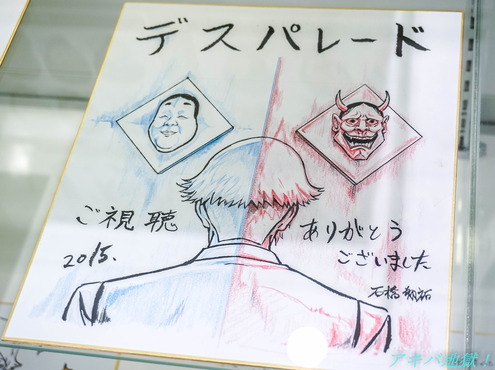 デスパレード
ご視聴
ありがとう
ございました
2015.
石橋
アキバ地獄!